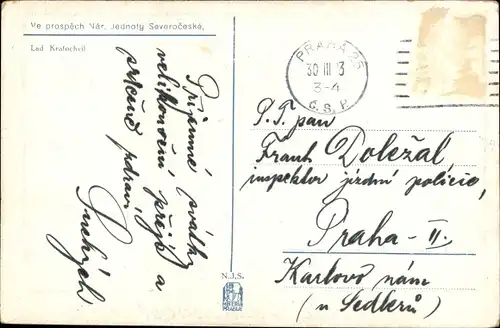 Ve prospěch Nár. Jednoty Severočeské.
Lad Kratochvíl
Příjemné svátky
velikonoční přeje a
přítele zdraví
PRAHA 25
30 III 3
3-4
Č. S. P.
P. T. pan
Frant Doležal
inspektor jízdní policie,
Praha-II.
Karlovo nám
(u Sedlerů)
N.J.S.